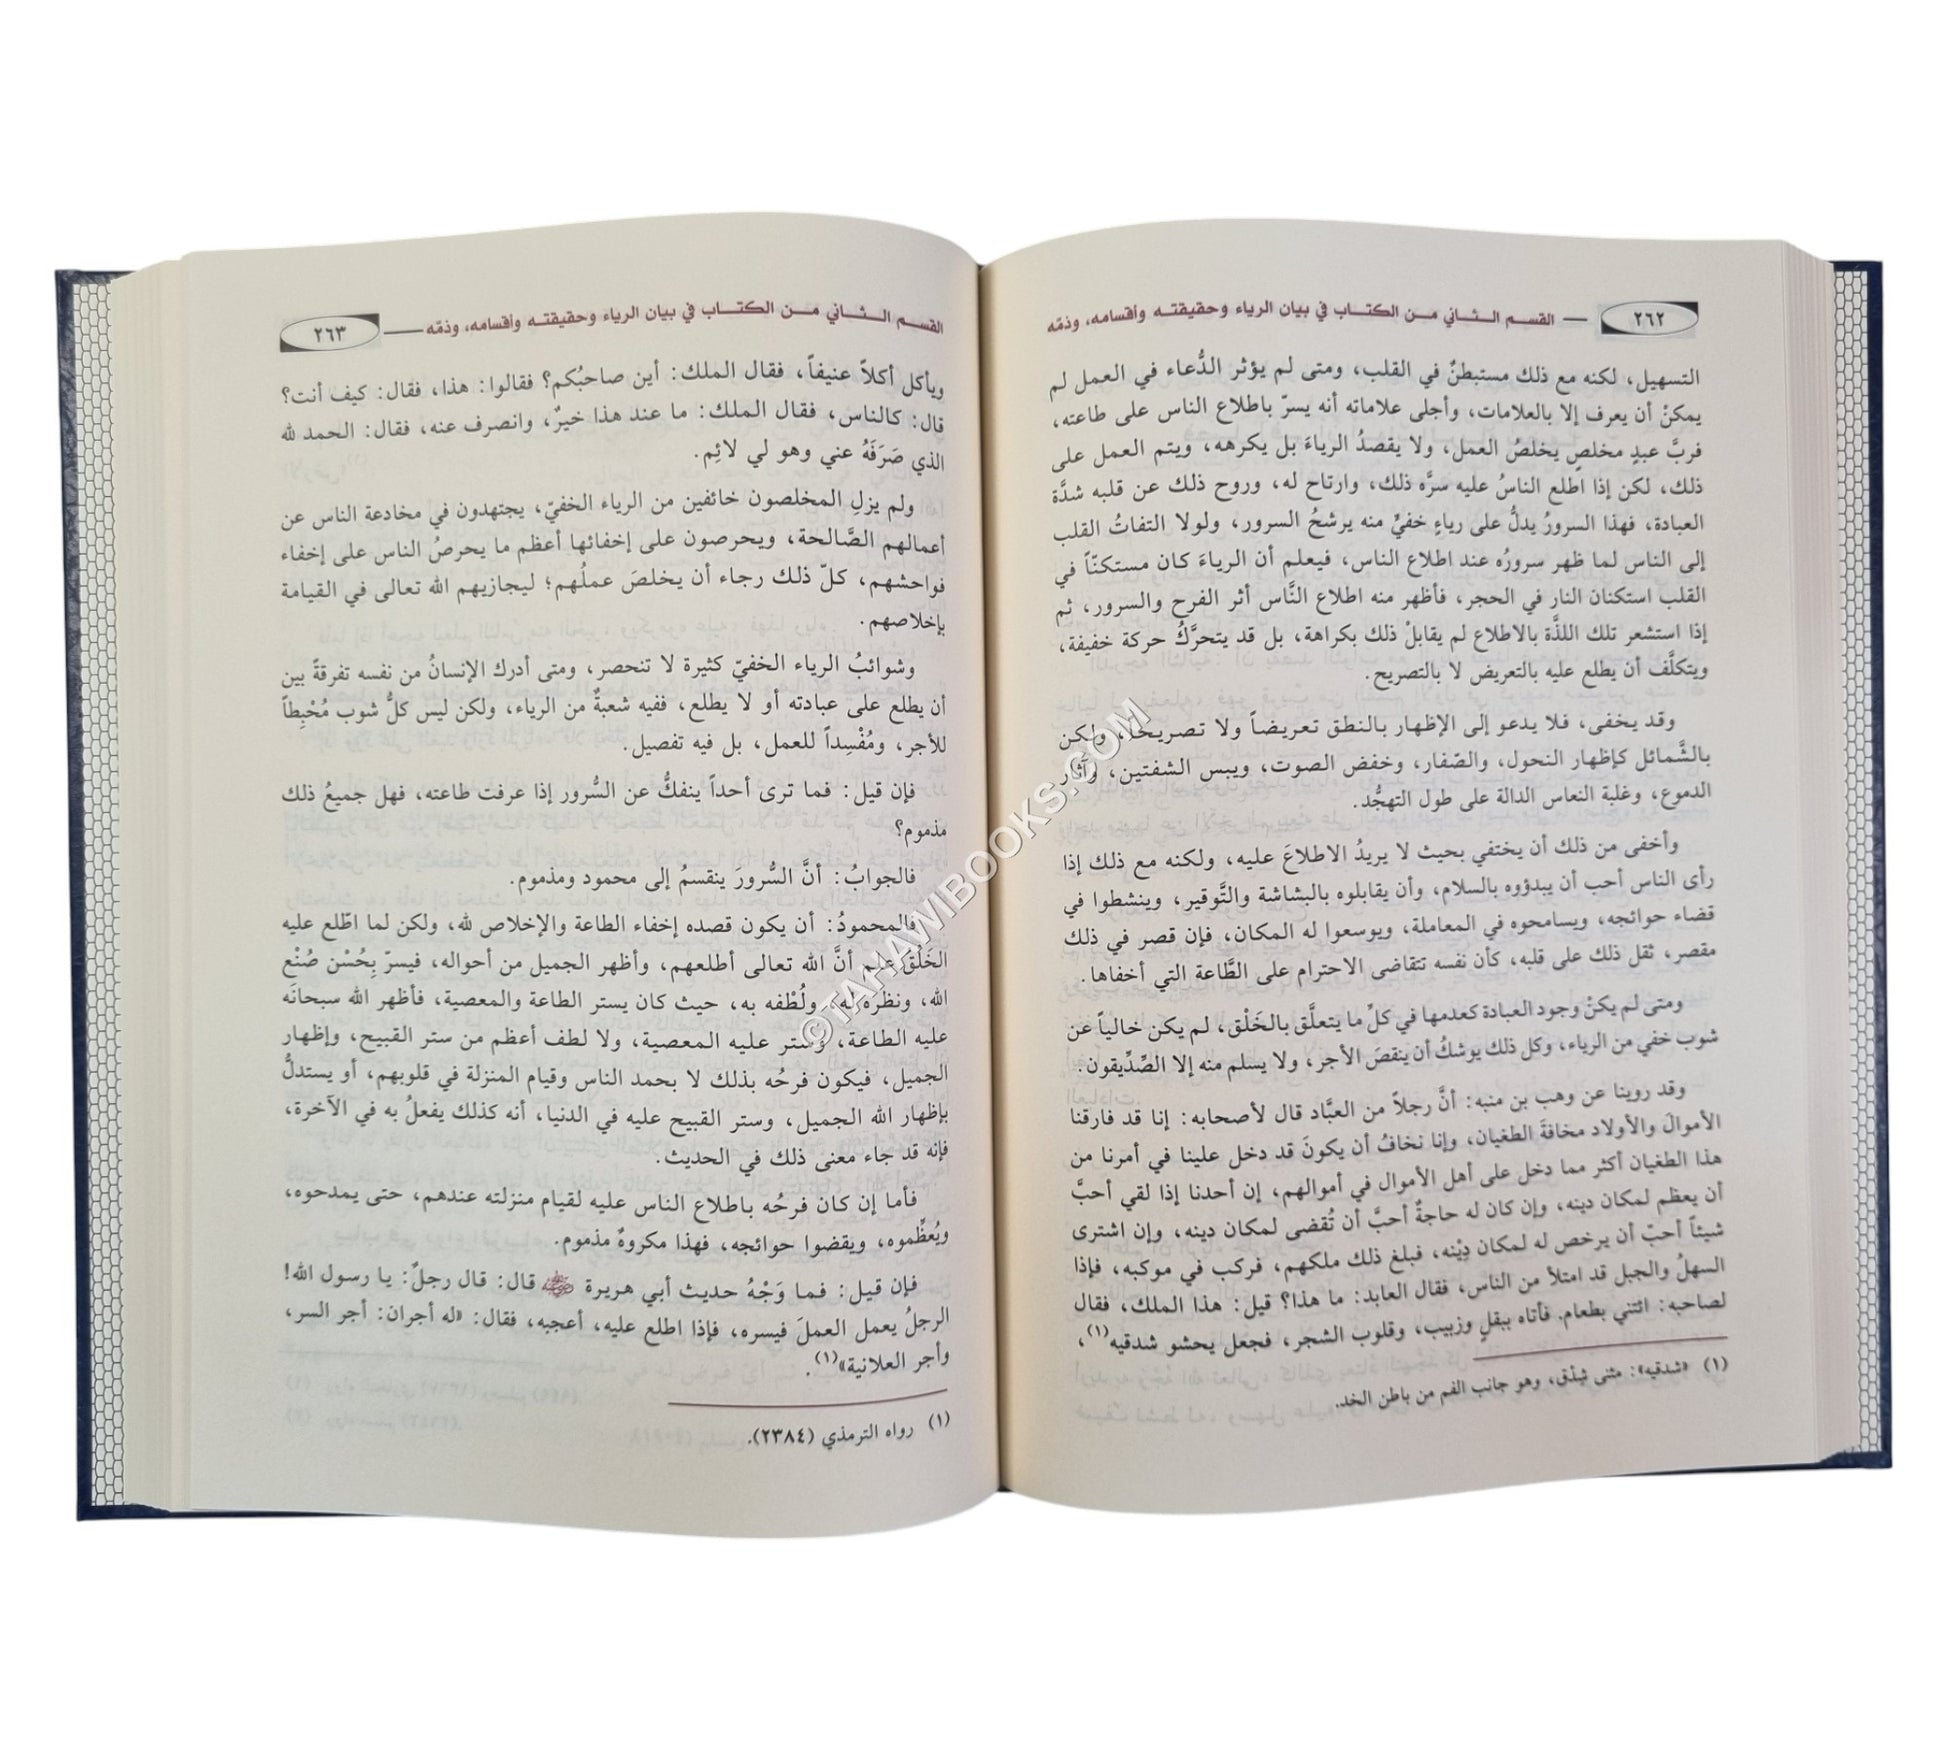 ٢٦٢ — القسم الثاني من الكتاب في بيان الرياء وحقيقته وأقسامه، وذمّه
التسهيل، لكنه مع ذلك مستبطنٌ في القلب، ومتى لم يؤثر الدُّعاء في العمل لم
يمكنْ أن يعرف إلا بالعلامات، وأجلى علاماته أنه يسرّ باطلاع الناس على طاعته،
فربَّ عبدٍ مخلصٍ يخلصُ العمل، ولا يقصدُ الرياءَ بل يكرهه، ويتم العمل على
ذلك، لكن إذا اطلع الناسُ عليه سرَّه ذلك، وارتاح له، وروح ذلك عن قلبه شدَّة
العبادة، فهذا السرورُ يدلُّ على رياءٍ خفيٍّ منه يرشحُ السرور، ولولا التفاتُ القلب
إلى الناس لما ظهر سرورُه عند اطلاع الناس، فيعلم أن الرياءَ كان مستكنّاً في
القلب استكنان النار في الحجر، فأظهر منه اطلاع النَّاس أثر الفرح والسرور، ثم
إذا استشعر تلك اللذَّة بالاطلاع لم يقابلْ ذلك بكراهة، بل قد يتحرَّكُ حركة خفيفة،
ويتكلَّف أن يطلع عليه بالتعريض لا بالتصريح.
وقد يخفى، فلا يدعو إلى الإظهار بالنطق تعريضاً ولا تصريحاً، ولكن
بالشَّمائل كإظهار النحول، والصّفار، وخفض الصوت، ويبس الشفتين، وآثار
الدموع، وغلبة النعاس الدالة على طول التهجُّد.
وأخفى من ذلك أن يختفي بحيث لا يريدُ الاطلاعَ عليه، ولكنه مع ذلك إذا
رأى الناس أحب أن يبدؤوه بالسلام، وأن يقابلوه بالبشاشة والتَّوقير، وينشطوا في
قضاء حوائجه، ويسامحوه في المعاملة، ويوسعوا له المكان، فإن قصر في ذلك
مقصر، ثقل ذلك على قلبه، كأن نفسه تتقاضى الاحترام على الطَّاعة التي أخفاها.
ومتى لم يكنْ وجود العبادة كعدمها في كلِّ ما يتعلَّق بالخَلْق، لم يكن خالياً عن
شوب خفي من الرياء، وكل ذلك يوشكُ أن ينقصَ الأجر، ولا يسلم منه إلا الصِّدِّيقون.
وقد روينا عن وهب بن منبه: أنَّ رجلاً من العبَّاد قال لأصحابه: إنا قد فارقنا
الأموالَ والأولاد مخافةَ الطغيان، وإنا نخافُ أن يكونَ قد دخل علينا في أمرنا من
هذا الطغيان أكثر مما دخل على أهل الأموال في أموالهم، إن أحدنا إذا لقي أحبَّ
أن يعظم لمكان دينه، وإن كان له حاجةٌ أحبَّ أن تُقضى لمكان دينه، وإن اشترى
شيئاً أحبّ أن يرخص له لمكان دِيْنه، فبلغ ذلك ملكهم، فركب في موكبه، فإذا
السهلُ والجبل قد امتلأ من الناس، فقال العابد: ما هذا؟ قيل: هذا الملك، فقال
لصاحبه: ائتني بطعام. فأتاه ببقلٍ وزبيب، وقلوب الشجر، فجعل يحشو شدقيه(١)،
(١) «شدقيه»: مثنى شِدْق، وهو جانب الفم من باطن الخد.
القسم الثاني من الكتاب في بيان الرياء وحقيقته وأقسامه، وذمّه — ٢٦٣
ويأكل أكلاً عنيفاً، فقال الملك: أين صاحبُكم؟ فقالوا: هذا، فقال: كيف أنت؟
قال: كالناس، فقال الملك: ما عند هذا خيرٌ، وانصرف عنه، فقال: الحمد لله
الذي صَرَفَهُ عني وهو لي لائِم.
ولم يزلِ المخلصون خائفين من الرياء الخفيّ، يجتهدون في مخادعة الناس عن
أعمالهم الصَّالحة، ويحرصون على إخفائها أعظم ما يحرصُ الناس على إخفاء
فواحشهم، كلّ ذلك رجاء أن يخلصَ عملُهم؛ ليجازيهم الله تعالى في القيامة
بإخلاصهم.
وشوائبُ الرياء الخفيّ كثيرة لا تنحصر، ومتى أدرك الإنسانُ من نفسه تفرقةً بين
أن يطلع على عبادته أو لا يطلع، ففيه شعبةٌ من الرياء، ولكن ليس كلُّ شوب مُحْبِطاً
للأجر، ومُفْسِداً للعمل، بل فيه تفصيل.
فإن قيل: فما ترى أحداً ينفكُّ عن السُّرور إذا عرفت طاعته، فهل جميعُ ذلك
مذموم؟
فالجوابُ: أنَّ السُّرورَ ينقسمُ إلى محمود ومذموم.
فالمحمودُ: أن يكون قصده إخفاء الطاعة والإخلاص لله، ولكن لما اطّلع عليه
الخَلْقُ علم أنَّ الله تعالى أطلعهم، وأظهر الجميل من أحواله، فيسرّ بِحُسْن صُنْع
الله، ونظرَه له، ولُطْفه به، حيث كان يستر الطاعة والمعصية، فأظهر الله سبحانَه
عليه الطاعة، وستر عليه المعصية، ولا لطف أعظم من ستر القبيح، وإظهار
الجميل، فيكون فرحُه بذلك لا بحمد الناس وقيام المنزلة في قلوبهم، أو يستدلُّ
بإظهار الله الجميل، وستر القبيح عليه في الدنيا، أنه كذلك يفعلُ به في الآخرة،
فإنه قد جاء معنى ذلك في الحديث.
فأما إن كان فرحُه باطلاع الناس عليه لقيام منزلته عندهم، حتى يمدحوه،
ويُعظِّموه، ويقضوا حوائجه، فهذا مكروهٌ مذموم.
فإن قيل: فما وَجْهُ حديث أبي هريرة ﵁ قال: قال رجلٌ: يا رسول الله!
الرجلُ يعمل العملَ فيسره، فإذا اطلع عليه، أعجبه، فقال: «له أجران: أجر السر،
وأجر العلانية»(١).
(١) رواه الترمذي (٢٣٨٤).
©TAHAWIBOOKS.COM